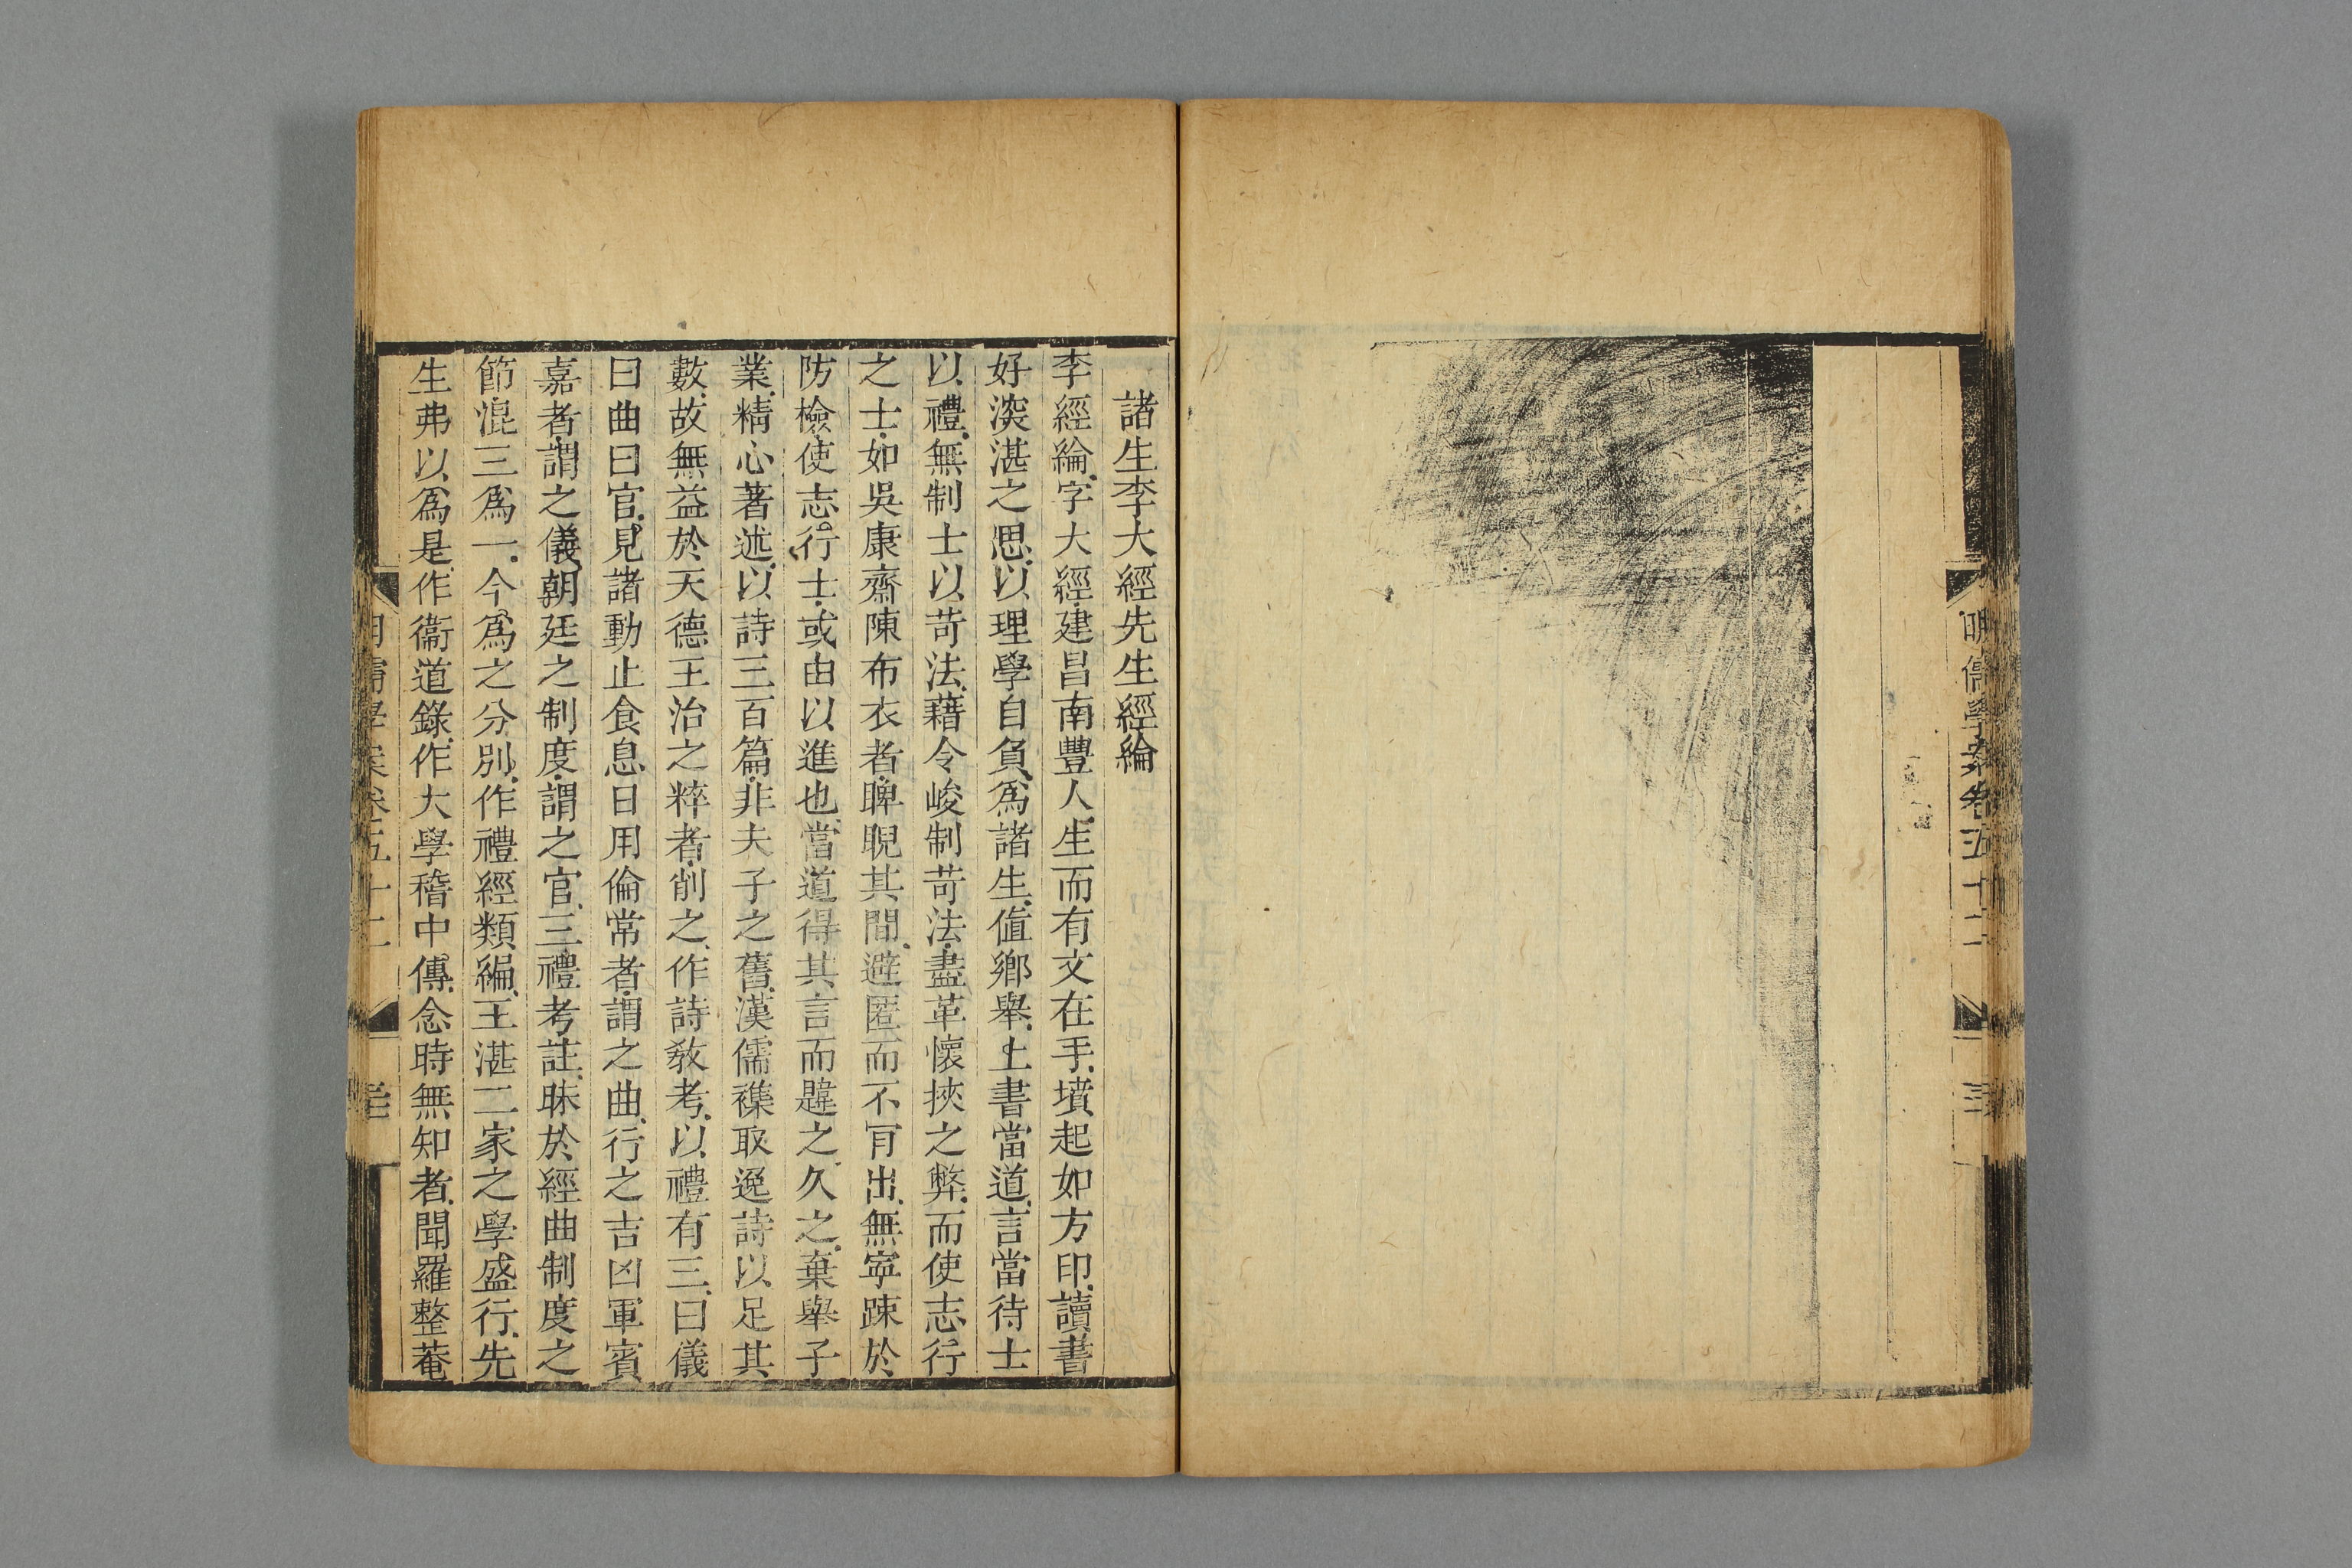 明儒學案卷五十二
諸生李大經先生經綸
李經綸字大經建昌南豐人生而有文在手墳起如方印讀書
好深湛之思以理學自負爲諸生值鄉舉上書當道言當待士
以禮無制士以苛法藉令峻制苛法盡革懷挾之弊而使志行
之士如吳康齋陳布衣者睥睨其間避匿而不肎出無寧踈於
防檢使志行士或由以進也當道得其言而韙之久之棄舉子
業精心著述以詩三百篇非夫子之舊漢儒襍取逸詩以足其
數故無益於天德王治之粹者削之作詩敎考以禮有三曰儀
曰曲曰官見諸動止食息日用倫常者謂之曲行之吉凶軍賓
嘉者謂之儀朝廷之制度謂之官三禮考註昧於經曲制度之
節混三爲一今爲之分別作禮經類編王湛二家之學盛行先
生弗以爲是作衞道錄作大學稽中傳念時無知者聞羅整菴
明儒學案卷五十二